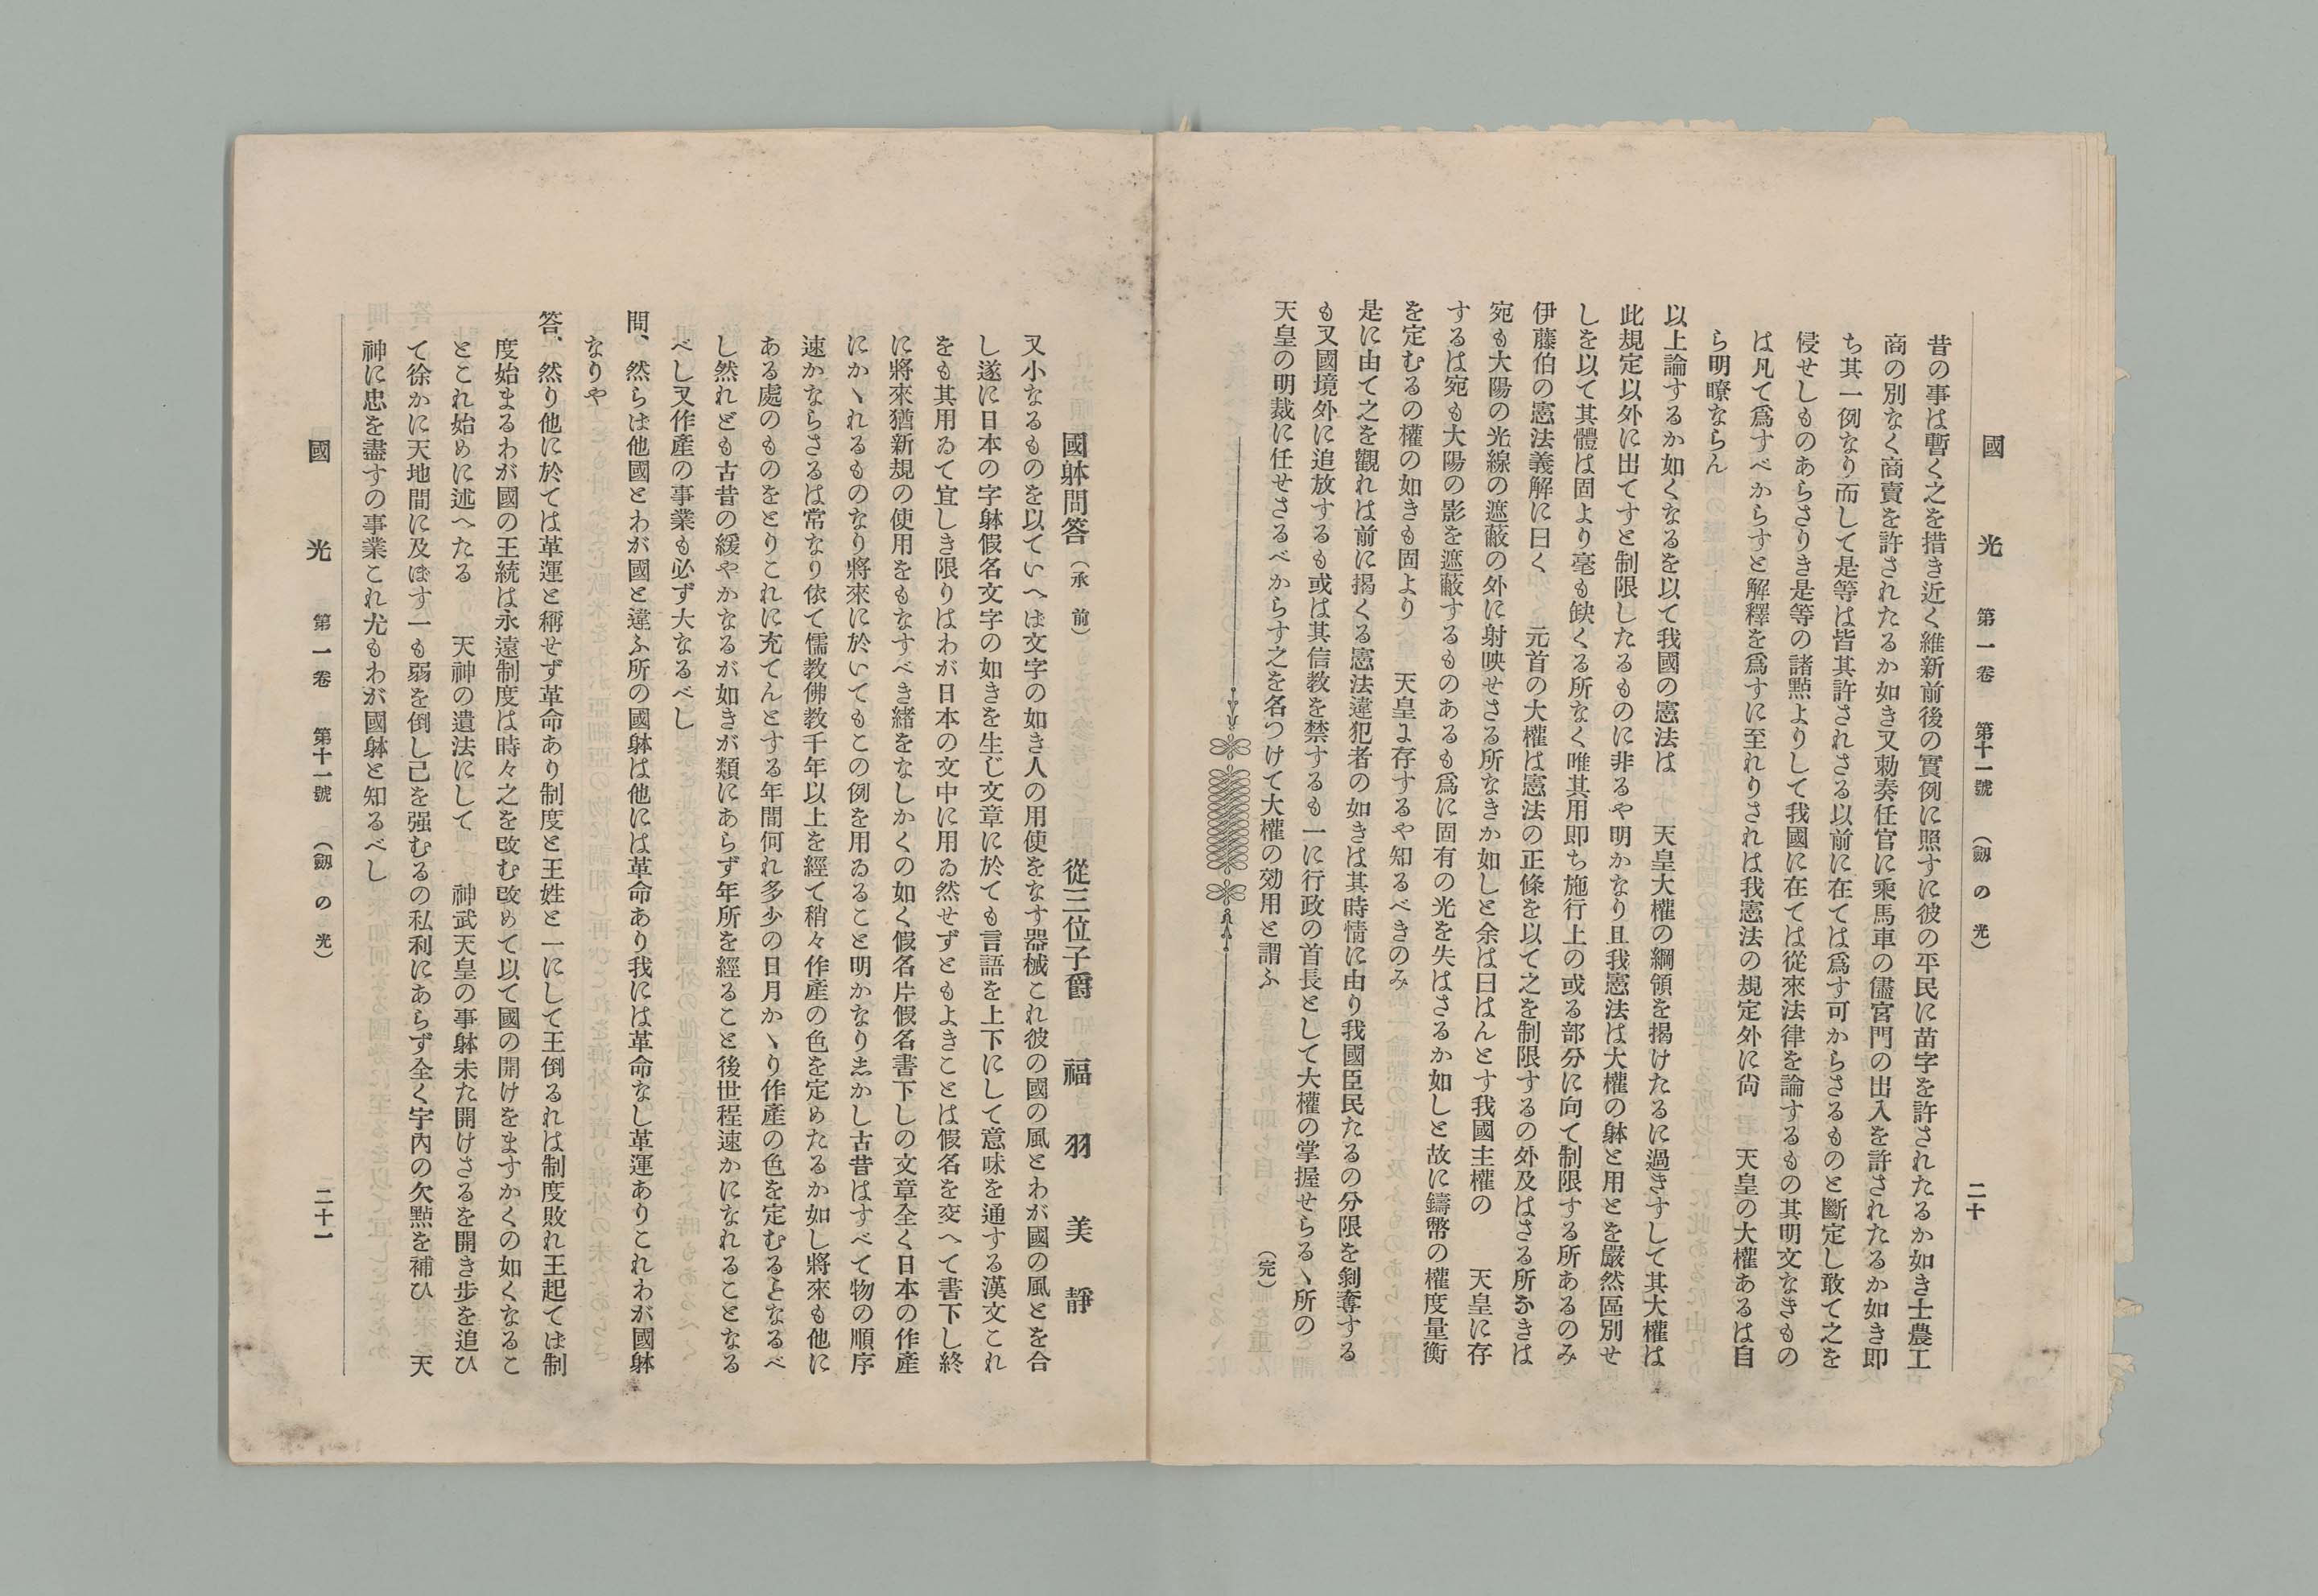 國光 第一卷 第十一號 （劒の光） 二十
昔の事は暫く之を措き近く維新前後の實例に照すに彼の平民に苗字を許されたるか如き士農工
商の別なく商賣を許されたるか如き又勅奏任官に乘馬車の儘宮門の出入を許されたるか如き即
ち其一例なり而して是等は皆其許されさる以前に在ては爲す可からさるものと斷定し敢て之を
侵せしものあらさりき是等の諸㸃よりして我國に在ては從來法律を論するもの其明文なきもの
は凡て爲すべからすと解釋を爲すに至れりされは我憲法の規定外に尙　天皇の大權あるは自
ら明瞭ならん
以上論するか如くなるを以て我國の憲法は　天皇大權の綱領を揭けたるに過きすして其大權は
此規定以外に出てすと制限したるものに非るや明かなり且我憲法は大權の躰と用とを嚴然區別せ
しを以て其體は固より毫も缺くる所なく唯其用即ち施行上の或る部分に向て制限する所あるのみ
伊藤伯の憲法義解に曰く　元首の大權は憲法の正條を以て之を制限するの外及はさる所なきは
宛も大陽の光線の遮蔽の外に射映せさる所なきか如しと余は曰はんとす我國主權の　天皇に存
するは宛も大陽の影を遮蔽するものあるも爲に固有の光を失はさるか如しと故に鑄幣の權度量衡
を定むるの權の如きも固より　天皇ょ存するや知るべきのみ
是に由て之を觀れは前に揭くる憲法違犯者の如きは其時情に由り我國臣民たるの分限を剝奪する
も又國境外に追放するも或は其信教を禁するも一に行政の首長として大權の掌握せらるヽ所の
天皇の明裁に任せさるべからす之を名つけて大權の効用と謂ふ
（完）
國躰問答（承前）　從三位子爵　福羽美靜
又小なるものを以ていへは文字の如き人の用使をなす器械これ彼の國の風とわが國の風とを合
し遂に日本の字躰假名文字の如きを生じ文章に於ても言語を上下にして意味を通する漢文これ
をも其用ゐて宜しき限りはわが日本の文中に用ゐ然せずともよきことは假名を交へて書下し終
に將來猶新規の使用をもなすべき緖をなしかくの如く假名片假名書下しの文章全く日本の作產
にかヽれるものなり將來に於いてもこの例を用ゐること明かなり志かし古昔はすべて物の順序
速かならさるは常なり依て儒教佛教千年以上を經て稍々作產の色を定めたるか如し將來も他に
ある處のものをとりこれに充てんとする年間何れ多少の日月かヽり作產の色を定むるとなるべ
し然れども古昔の緩やかなるが如きが類にあらず年所を經ること後世程速かになれることなる
べし又作產の事業も必ず大なるべし
問、然らは他國とわが國と違ふ所の國躰は他には革命あり我には革命なし革運ありこれわが國躰
なりや
答、然り他に於ては革運と稱せず革命あり制度と王姓と一にして王倒るれは制度敗れ王起ては制
度始まるわが國の王統は永遠制度は時々之を改む改めて以て國の開けをますかくの如くなるこ
とこれ始めに述へたる　天神の遺法にして　神武天皇の事躰未た開けさるを開き步を追ひ
て徐かに天地間に及ぼす一も弱を倒し己を强むるの私利にあらず全く宇內の欠㸃を補ひ　天
神に忠を盡すの事業これ尤もわが國躰と知るべし
國光 第一卷 第十一號 （劒の光） 二十一